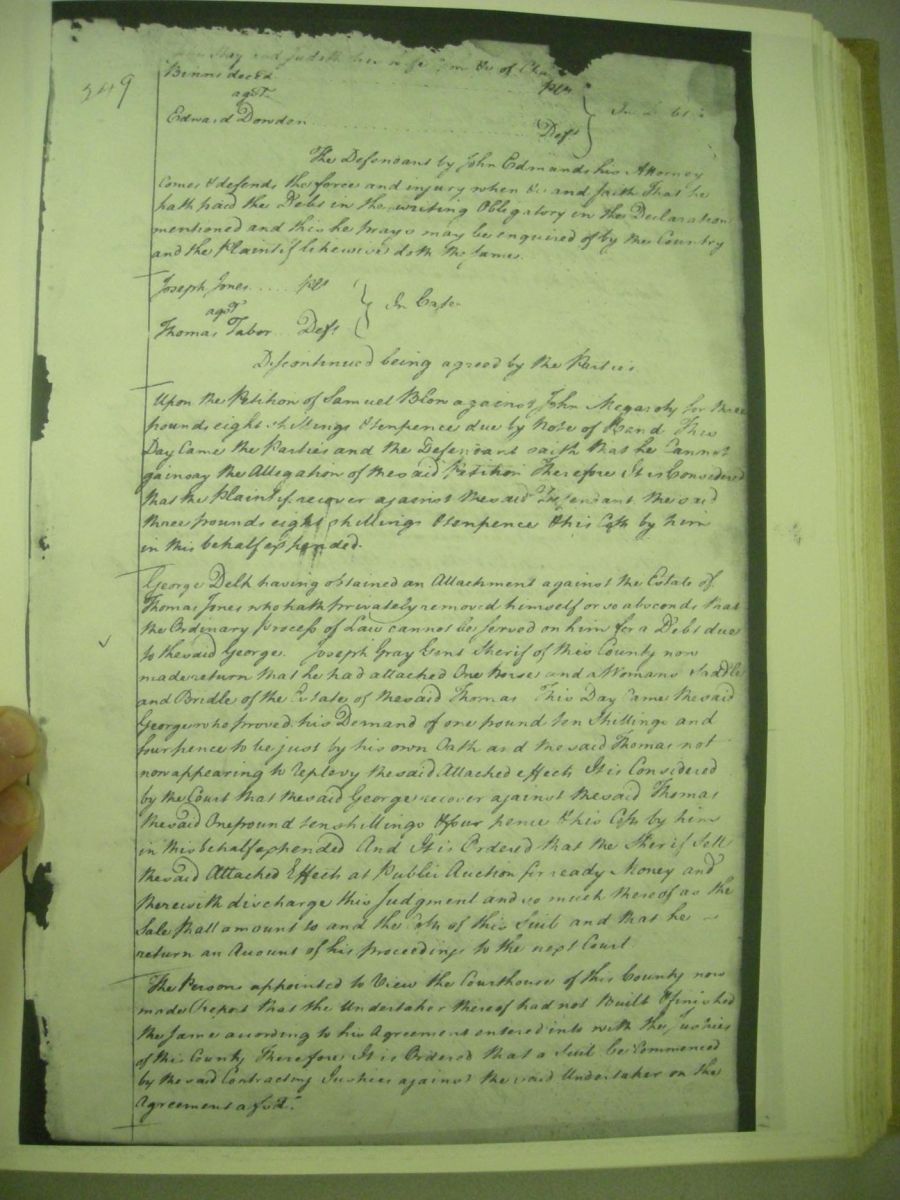 349
and Judith his wife of
Binns decd. plts
agst. In
Edward Dowden Deft
The Defendant by John Edmunds his Attorney
comes & defends the force and injury when &c and saith that he
hath paid the Debt in the writing Obligatory in the Declaration
mentioned and this he prays may be enquired of by the Country
and the Plaintif likewise doth the same.
Joseph Jones plt
agst In Case
Thomas Tabor Deft
Discontinued being agreed by the Parties
Upon the Petition of Samuel Blow against John Megarity for three
pounds eight shillings & tenpence due by Note of Hand This
Day Came the Parties and the Defendant saith that he Cannot
gainsay the Allegation of the said Petition Therefore It is Considered
that the Plaintif recover against the said Defendant the said
three pounds eight shillings & tenpence & his Costs by him
in this behalf expended.
George Delk having obtained an Attachment against the Estate of
Thomas Jones who hath privately removed himself or so absconds that
the Ordinary process of Law cannot be served on him for a Debt due
to the said George. Joseph Gray Gent Sherif of this County now
made return that he had attached One horse and a Womans Saddle
and Bridle of the Estate of the said Thomas This Day Came the said
George who proved his Demand of one pound ten Shillings and
four pence to be just by his own Oath and the said Thomas not
now appearing to replevy the said Attached effects It is Considered
by the Court that the said George recover against the said Thomas
the said One pound ten shillings & four pence & his Costs by him
in this behalf expended And It is Ordered that the Sherif Sell
the said Attached Effects at Public Auction for ready Money and
therewith discharge this Judgment and so much thereof as the
Sale shall amount to and the Costs of this Suit and that he
return an Account of his proceedings to the next Court
The Persons appointed to View the Courthouse of this County now
made Report that the Undertaker thereof had not built & finished
the same according to his Agreement entered into with the Justices
of this County Therefore It is Ordered that a Suit be Commenced
by the said Contracting Justices against the said Undertaker on the
Agreement afsd.